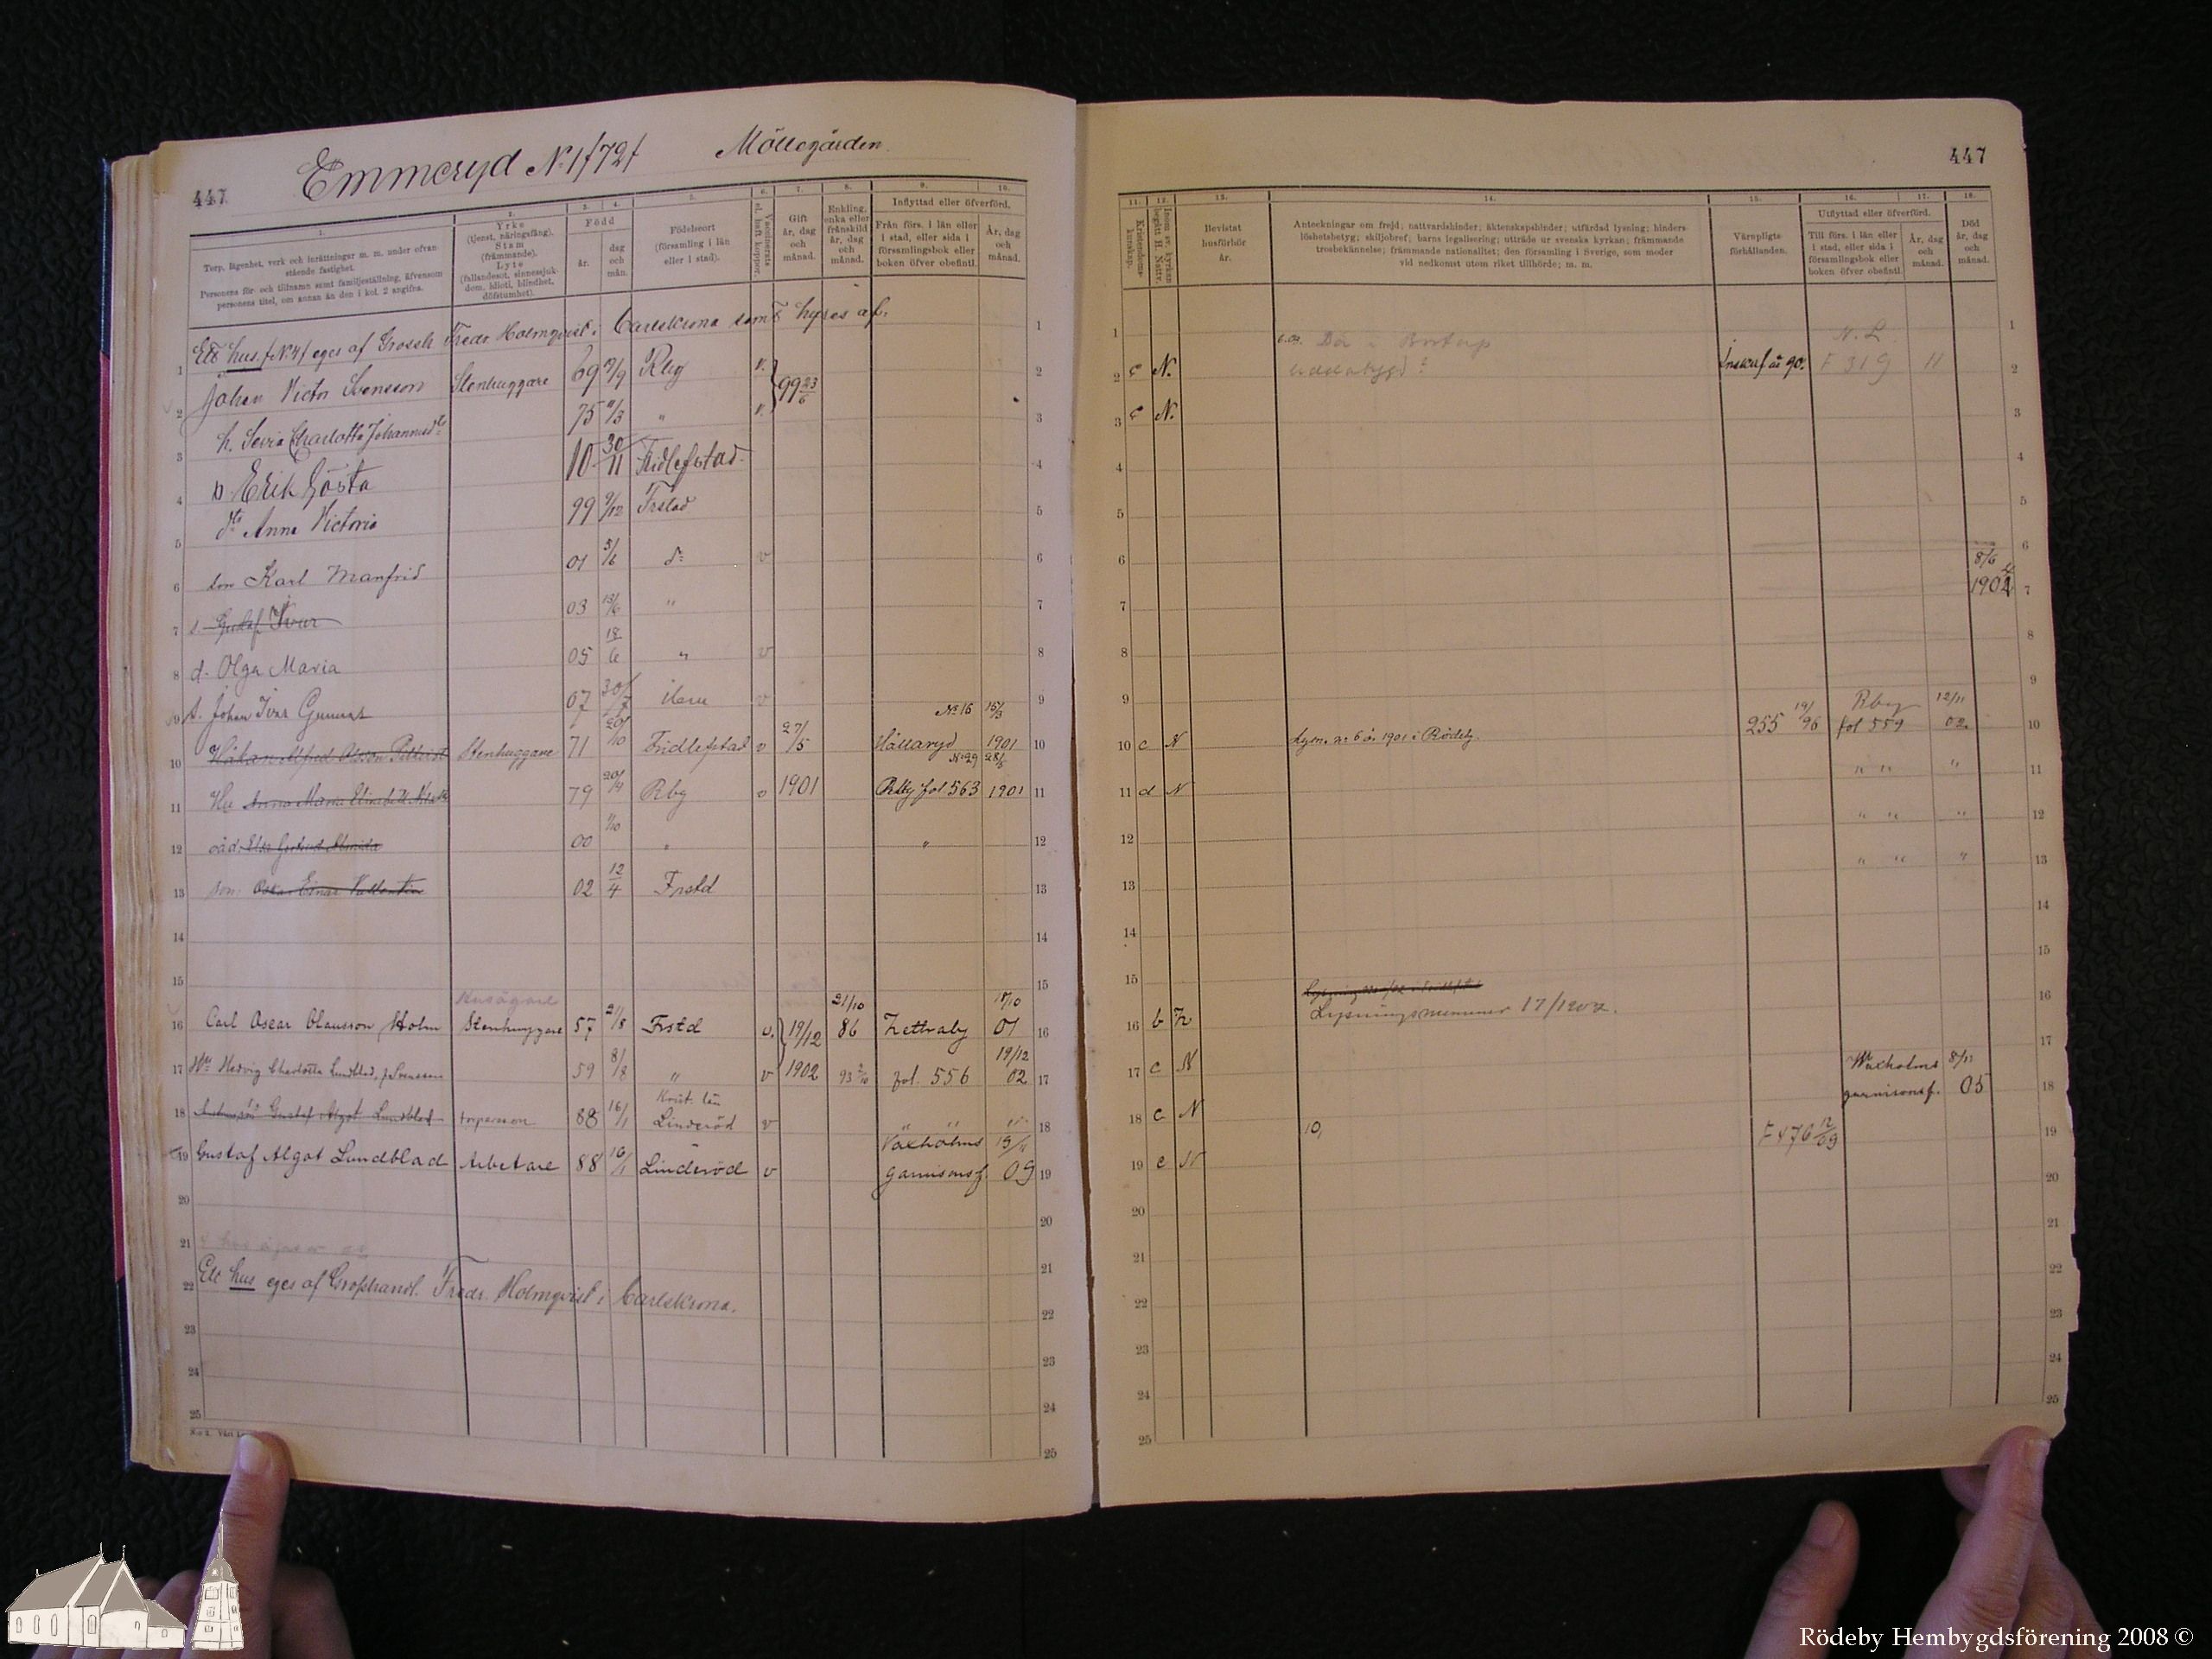 447 Emmeryd No 1/72/ Möllegården.
447
1. 2. 3. 4. 5. 6. 7. 8. 9. 10.
Torp, lägenhet, verk och inrättningar m. m. under ofvan stående fastighet.
Personens för- och tillnamn samt familjeställning, äfvensom personens titel, om annan än den i kol. 2 angifna.
Yrke (tjenst, näringsfång).
Stam (främmande).
Lyte (fallandesot, sinnessjukdom, idioti, blindhet, döfstumhet).
Född
år. dag och mån.
Födelseort (församling i län eller i stad).
Vaccinerats el. haft koppor.
Gift år, dag och månad.
Enkling, enka eller frånskild år, dag och månad.
Inflyttad eller öfverförd.
Från förs. i län eller i stad, eller sida i församlingsbok eller boken öfver obefintl.
År, dag och månad.
11. 12. 13. 14. 15. 16. 17. 18.
Kristendoms-kunskap.
Inom sv. kyrkan begått H. Nattv.
Bevistat husförhör år.
Anteckningar om frejd, nattvardshinder; äktenskapshinder; utfärdad lysning; hinders-
löshetsbetyg; skiljobref; barns legalisering; utträde ur svenska kyrkan; främmande
trosbekännelse; främmande nationalitet; den församling i Sverige, som moder
vid nedkomst utom riket tillhörde; m. m.
Värnpligts förhållanden.
Utflyttad eller öfverförd.
Till förs. i län eller i stad, eller sida i församlingsbok eller boken öfver obefintl.
År, dag och månad.
Död år, dag och månad.
1 Ett hus /No 4/ eges af Grossh Fredr. Holmqvist i Carlskrona samt hyres af: 1
2 Johan Victor Svensson Stenhuggare 69 Rbg v. 99 23/6 2 c N. F 319 11
3 h. Charlotta Johannesdtr 75 11/3 " v. 3 c N.
4 s Erik Gösta 10 30/11 Fridlefstad 4
5 dtr Anna Victoria 99 9/12 Frstad 5
6 son Karl Manfrid 01 5/6 d:o v 6
7 s. Gustaf Ivar 03 13/6 " 7 8/6 1904
8 d. Olga Maria 05 18/6 " v 8
9 s. Johan Ivar Gunnar 07 30/7 v 9
10 Håkan Alfred Olsson Stenhuggare 71 20/10 Fridlefstad v 27/5 No 16 Hallaryd 15/3 1901 10 c N Lysn. nr 6 år 1901 i Rödeby. 255 19/96 Rbg fol 559 12/11 02
11 Hu Anna Maria Elisabeth 79 20/9 Rbg v 1901 No 29 Rbg fol 563 28/5 1901 11 d N " " "
12 oäd. Elsa Gertrud 00 11/10 " " 12 " " "
13 son. Oskar Einar Valentin 02 12/4 Frstd 13 " " "
14
15
Husägare
16 Carl Oscar Olausson Holm Stenhuggare 57 21/8 Frstd v. 19/12 21/10 86 Zettraby 18/10 01 16 b N Lysningsnummer 17/1902.
17 Hu Hedvig Charlotta Lundblad, f. Svensson 59 8/8 " v 1902 93 2/10 fol. 556 19/12 02 17 c N
18 Gustaf Algot Lundblad torpareson 88 16/1 Krist. län Linderöd v 18 c N Waxholms garnisonsf. 8/11 05
19 Gustaf Algot Lundblad Arbetare 88 16/1 Linderöd v Vaxholms garnisonsf. 19/11 09 19 c N 10, F 476 12/09
20
21
22 Ett hus eges af Grosshandl. Fredr. Holmqvist i Carlskrona.
23
24
25
Rödeby Hembygdsförening 2008 ©